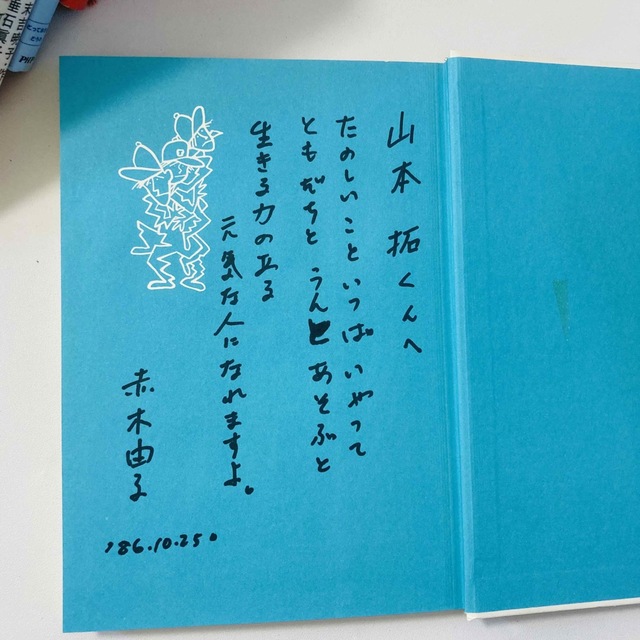 山本 拓くんへ
たのしいこと いっぱいやって
ともだちと うんとあそぶと
生きる力のある
元気な人になれますよ。
赤木由子
'86.10.25.
PHP